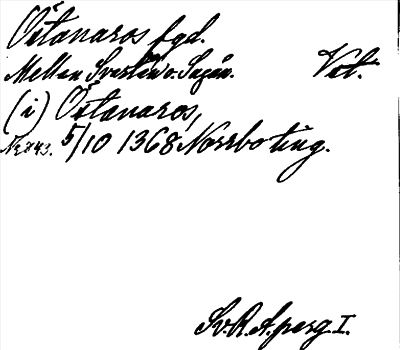 Östanaros fgd.
Mellan Svartån o. Sagån. Vstl.
(i) Östanaros,
Nr 843. 5/10 1368 Norrbo ting.
Sv. R. A. perg. I.